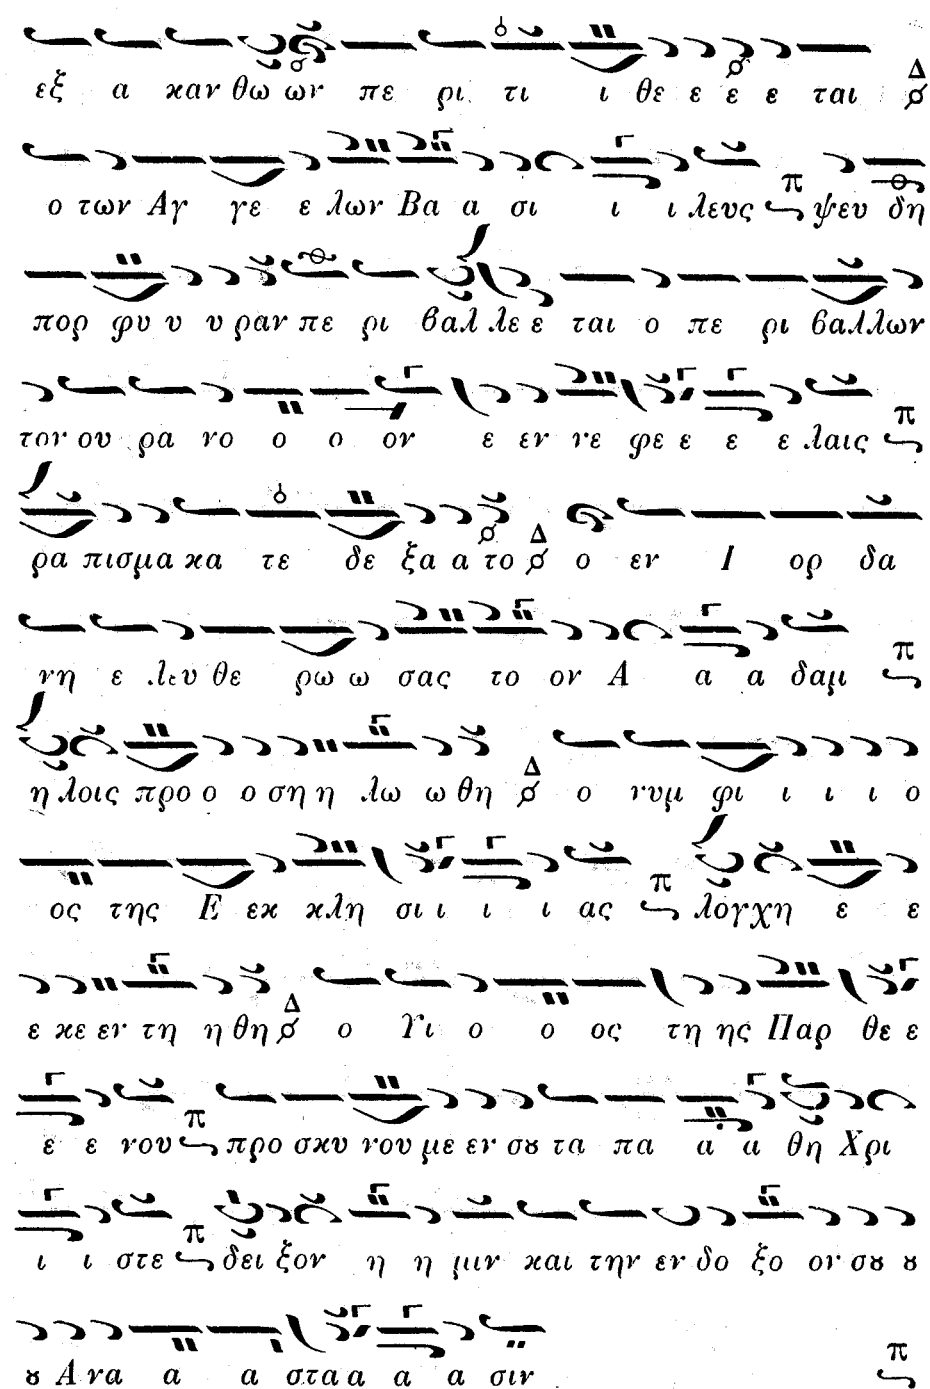 εξ α καν θω ων πε ρι τι ι θε ε ε ε ται Δ
ο των Αγ γε ε λων Βα α σι ι ι λευς π ψευ δη
πορ φυ υ υ ραν πε ρι βαλ λε ε ται ο πε ρι βαλλων
τον ου ρα νο ο ο ον ε εν νε φε ε ε ε λαις π
ρα πισμα κα τε δε ξα α το Δ ο εν Ι ορ δα
νη ε λευ θε ρω ω σας το ον Α α α δαμ π
η λοις προ ο ο ση η λω ω θη Δ ο νυμ φι ι ι ι ο
ος της Ε εκ κλη σι ι ι ι ας π λογχη ε ε
ε κε εν τη η θη Δ ο Υι ο ο ος τη ης Παρ θε ε
ε ε νου π προ σκυ νου με εν σȣ τα πα α α θη Χρι
ι ι στε π δει ξον η η μιν και την εν δο ξο ον σȣ ȣ
ȣ Α να α α στα α α α σιν π